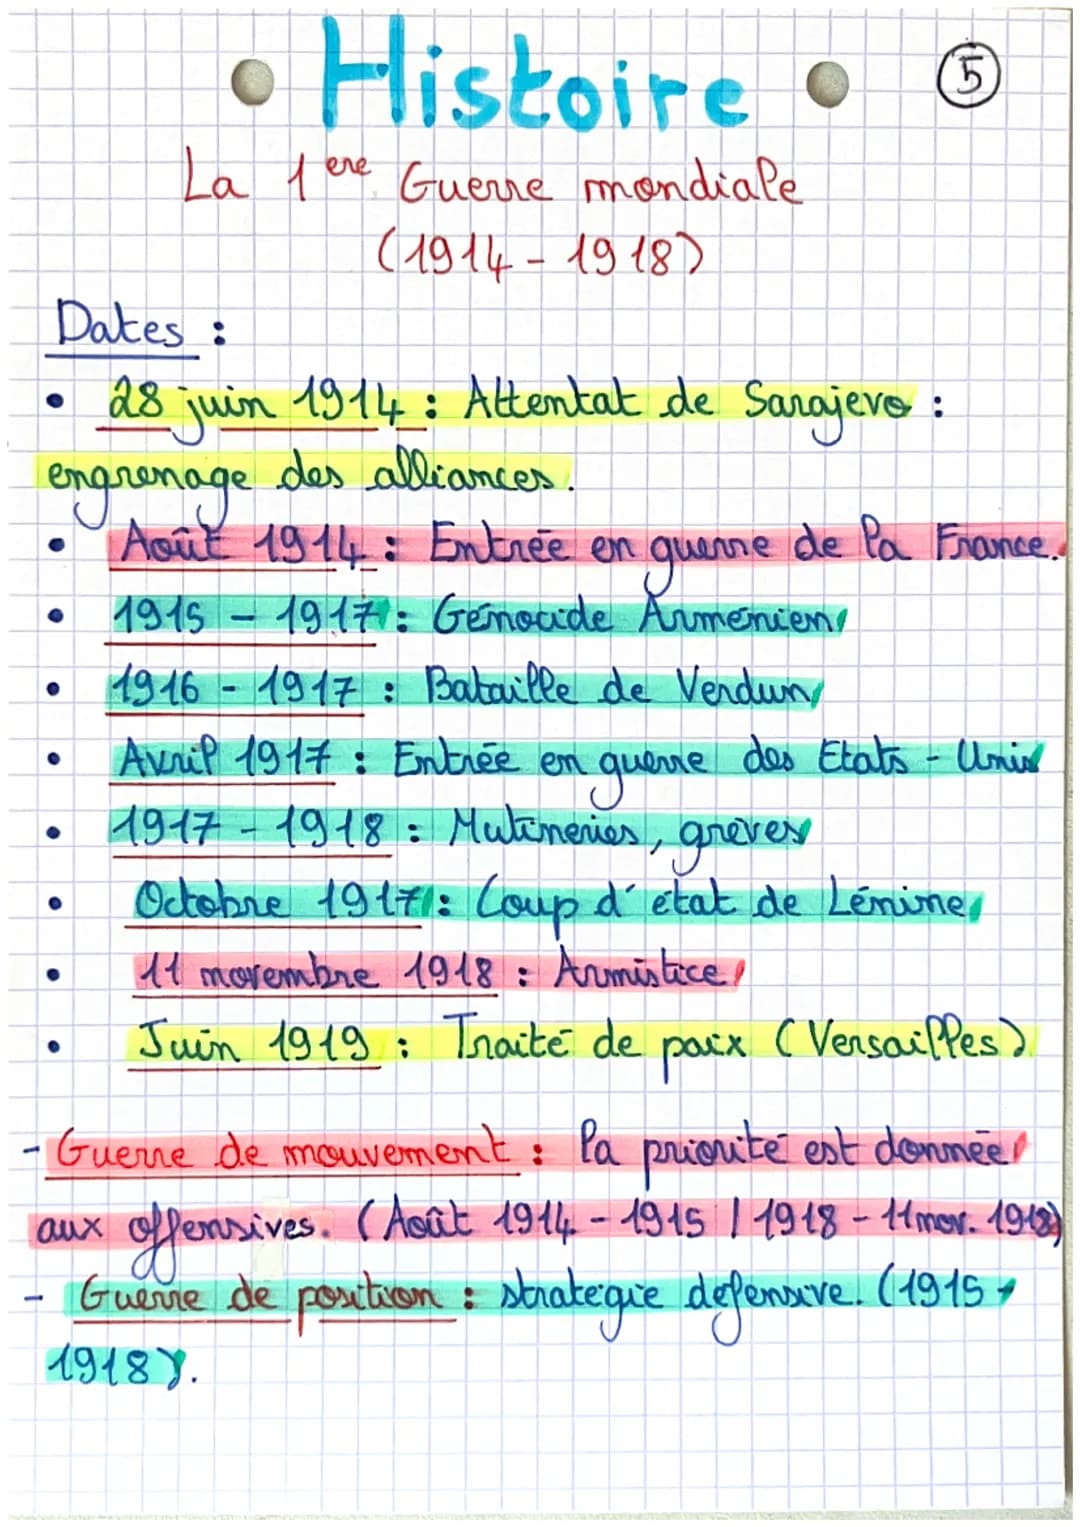 Histoire
5
La 1ere Guerre mondiale
(1914 - 1918)
Dates :
• 28 juin 1914 : Attentat de Sarajevo :
engrenage des alliances.
• Août 1914 : Entrée en guerre de la France.
• 1915 - 1917 : Génocide Arménien
• 1916 - 1917 : Bataille de Verdun
• Avril 1917 : Entrée en guerre des Etats - Unis
• 1917 - 1918 : Mutineries, grèves
• Octobre 1917 : Coup d'état de Lénine
• 11 novembre 1918 : Armistice
• Juin 1919 : Traité de paix (Versailles)
- Guerre de mouvement : la priorité est donnée
aux offensives. (Août 1914 - 1915 / 1918 - 11 nov. 1918)
- Guerre de position : stratégie défensive. (1915 -
1918).